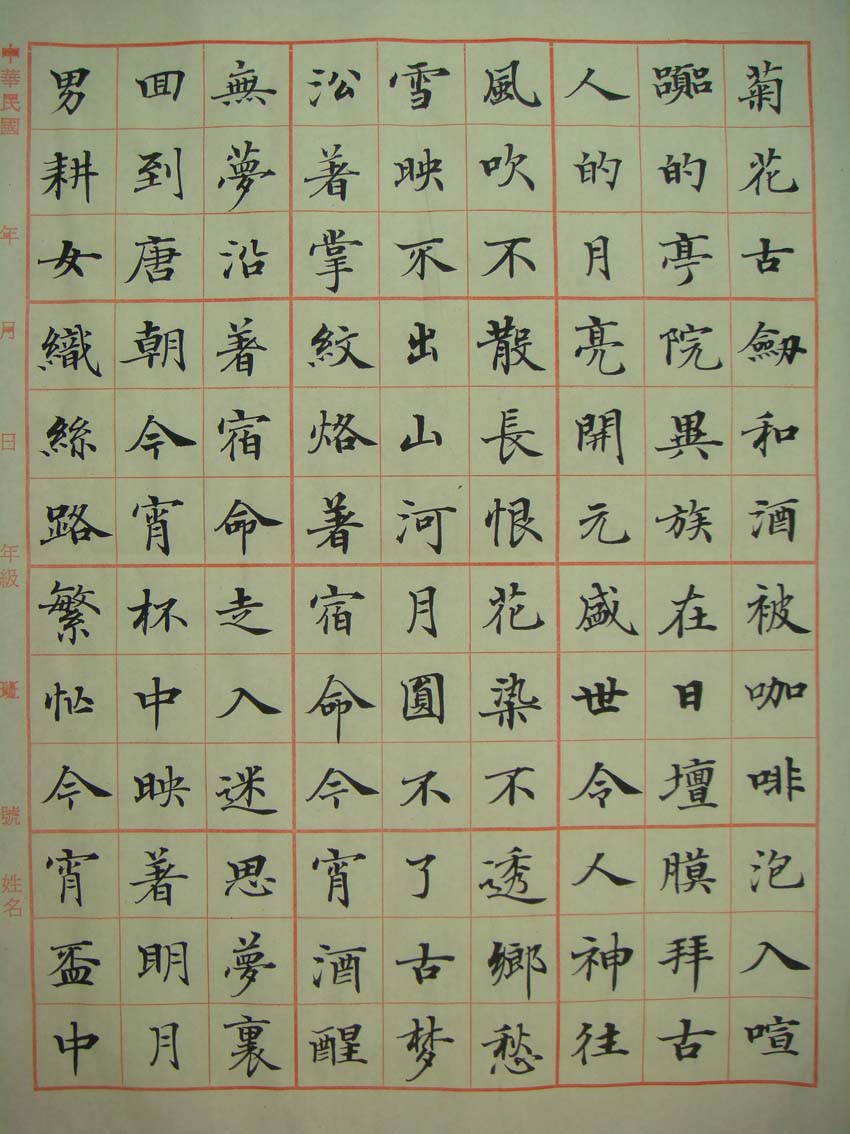 菊花古劍和酒被咖啡泡入喧
囂的亭院異族在日壇膜拜古
人的月亮開元盛世令人神往
風吹不散長恨花染不透鄉愁
雪映不出山河月圓不了古梦
㳂著掌紋烙著宿命今宵酒醒
無夢沿著宿命走入迷思夢裏
回到唐朝今宵杯中映著明月
男耕女織絲路繁忙今宵盃中
中華民國 年 月 日 年級 班 號 姓名